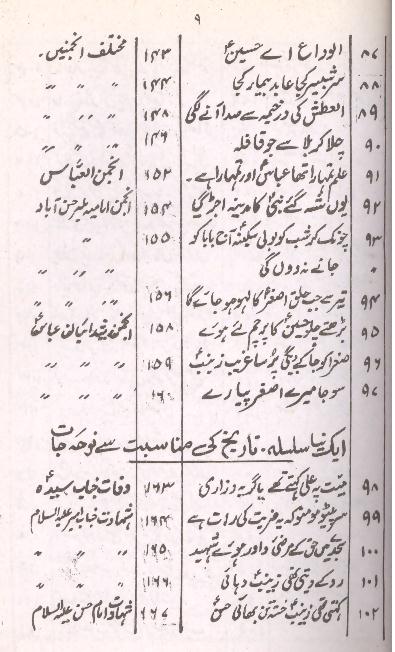 ۹
۸۷ الوداع اے حسینؑ ۱۴۳ مختلف انجمنیں۔
۸۸ سر شبیر کجا عابد بیمار کجا ۱۴۴ " " "
۸۹ العطش کی در خیمہ سے صدا آنے لگی ۱۴۸ " " "
۹۰ چلا کربلا سے جو قافلہ ۱۴۶ " " "
۹۱ علم تمہارا تھا عباسؑ اور تمہارا ہے۔ ۱۵۲ انجمن العباس
۹۲ یوں لٹ گئے نبیؐ کا مدینہ اجڑ گیا ۱۵۴ انجمن امامیہ حسن آباد
۹۳ چونک کر شب کو بولی سکینہؑ آج بابا کو ۱۵۵ "
جانے نہ دوں گی " "
۹۴ تیر سے جب حلق اصغرؑ کا لہو ہو جائے گا ۱۵۶ " " "
۹۵ بڑھے چلو حسینؑ کا پرچم لئے ہوئے ۱۵۸ انجمن فدائیان عباسؑ
۹۶ صغرا کو جا کے دیگی پرسا غریب زینبؑ ۱۵۹ " " "
۹۷ سو جا میرے اصغر پیارے ۱۶۰ " " "
ایک نیا سلسلہ۔ تاریخ کی مناسبت سے نوحہ جات
۹۸ میت پہ علی کہتے تھے با گریہ و زاری ۱۶۳ وفات جناب سیدہؑ
۹۹ سر پیٹو مومنو کہ یہ ضربت کی رات ہے ۱۶۴ شہادت جناب امیر علیہ السلام
۱۰۰ سجدے میں حق کے مرضئ داور ہوئے شہید ۱۶۵ " "
۱۰۱ رو کے دیتی تھی زینبؑ دہائی ۱۶۶ " "
۱۰۲ کہتی تھی زینبؑ خستہ تن بھائی حسنؑ ۱۶۷ شہادت امام حسن علیہ السلام